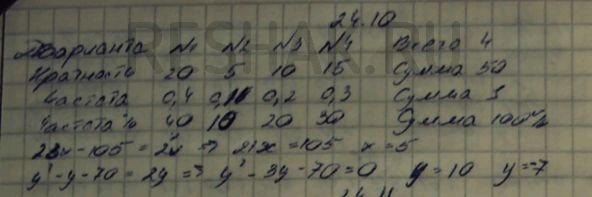 24.10
Варианта №1 №2 №3 №4 Всего 4
Кратность 20 5 10 15 Сумма 50
Частота 0,4 0,1 0,2 0,3 Сумма 1
Частота % 40 10 20 30 Сумма 100%
23x - 105 = 2x => 21x = 105 x = 5
y² - y - 70 = 2y => y² - 3y - 70 = 0 y = 10 y = -7
24.11
RESHAK.RU